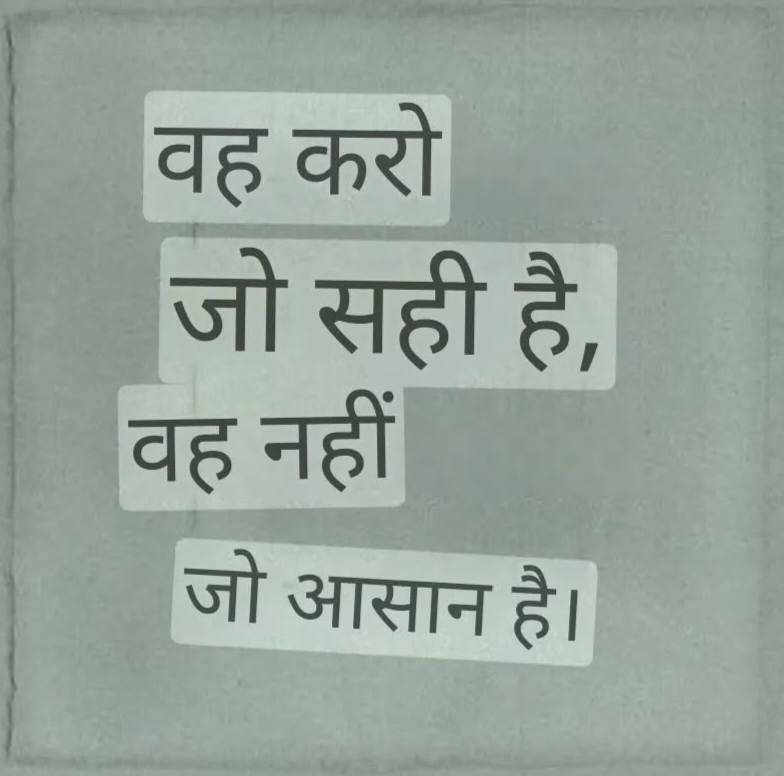 वह करो
जो सही है,
वह नहीं
जो आसान है।